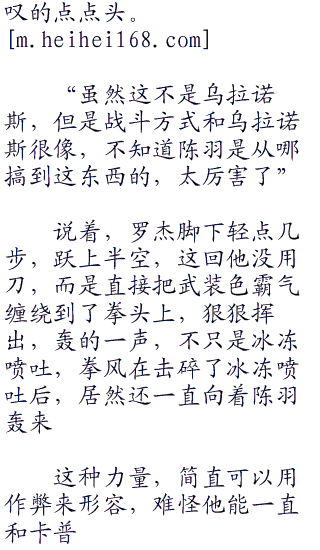 叹的点点头。
[m.heihei168.com]
“虽然这不是乌拉诺
斯，但是战斗方式和乌拉诺
斯很像，不知道陈羽是从哪
搞到这东西的，太厉害了”
说着，罗杰脚下轻点几
步，跃上半空，这回他没用
刀，而是直接把武装色霸气
缠绕到了拳头上，狠狠挥
出，轰的一声，不只是冰冻
喷吐，拳风在击碎了冰冻喷
吐后，居然还一直向着陈羽
轰来
这种力量，简直可以用
作弊来形容，难怪他能一直
和卡普